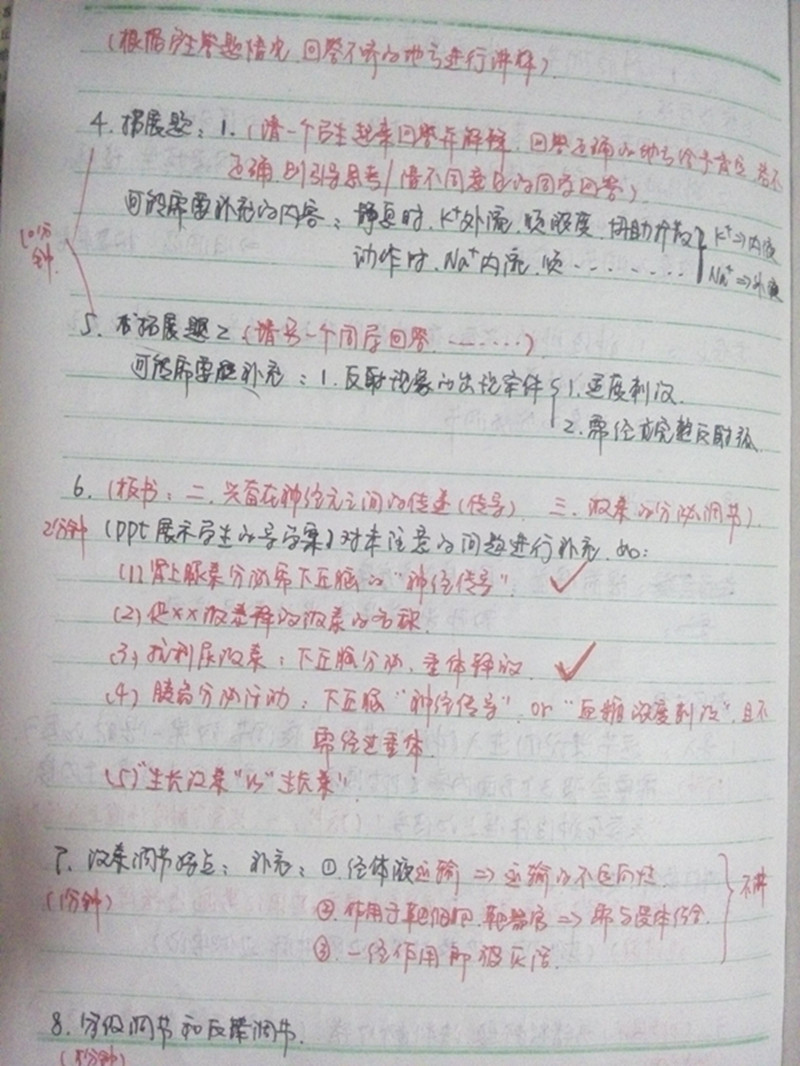 (根据学生答题情况,回答不好的地方进行讲解)
4. 拓展题:1.(请一个学生起来回答并解释,回答正确的地方给予肯定,若不
正确则引导思考/请不同意见的同学回答)
可能需要补充的内容:静息时,K⁺外流,顺浓度,协助扩散 K⁺⇒内液
10分钟
动作时,Na⁺内流,顺........ Na⁺⇒外液
5. 拓展题2(请另一个同学回答.......)
可能需要补充:1.反射现象的出现条件 1.适度刺激.
2.需经过完整反射弧
6.(板书:二、兴奋在神经元之间的传递(传导) 三、激素的分泌调节)
2分钟 (ppt展示学生的导学案)对未注意的问题进行补充,如:
(1)肾上腺素分泌需下丘脑的"神经传导"
(2)促××激素释放激素的名称
(3)抗利尿激素:下丘脑分泌,垂体释放.
(4)胰岛分泌活动:下丘脑"神经传导" or "血糖浓度刺激",且不
需经过垂体
(5)"生长激素"vs"生长素"
7. 激素调节特点:补充:①经体液运输⇒运输的不定向性
(1分钟) ②作用于靶细胞、靶器官⇒需与受体结合 不讲
③一经作用即被灭活
8.分级调节和反馈调节.
分钟)